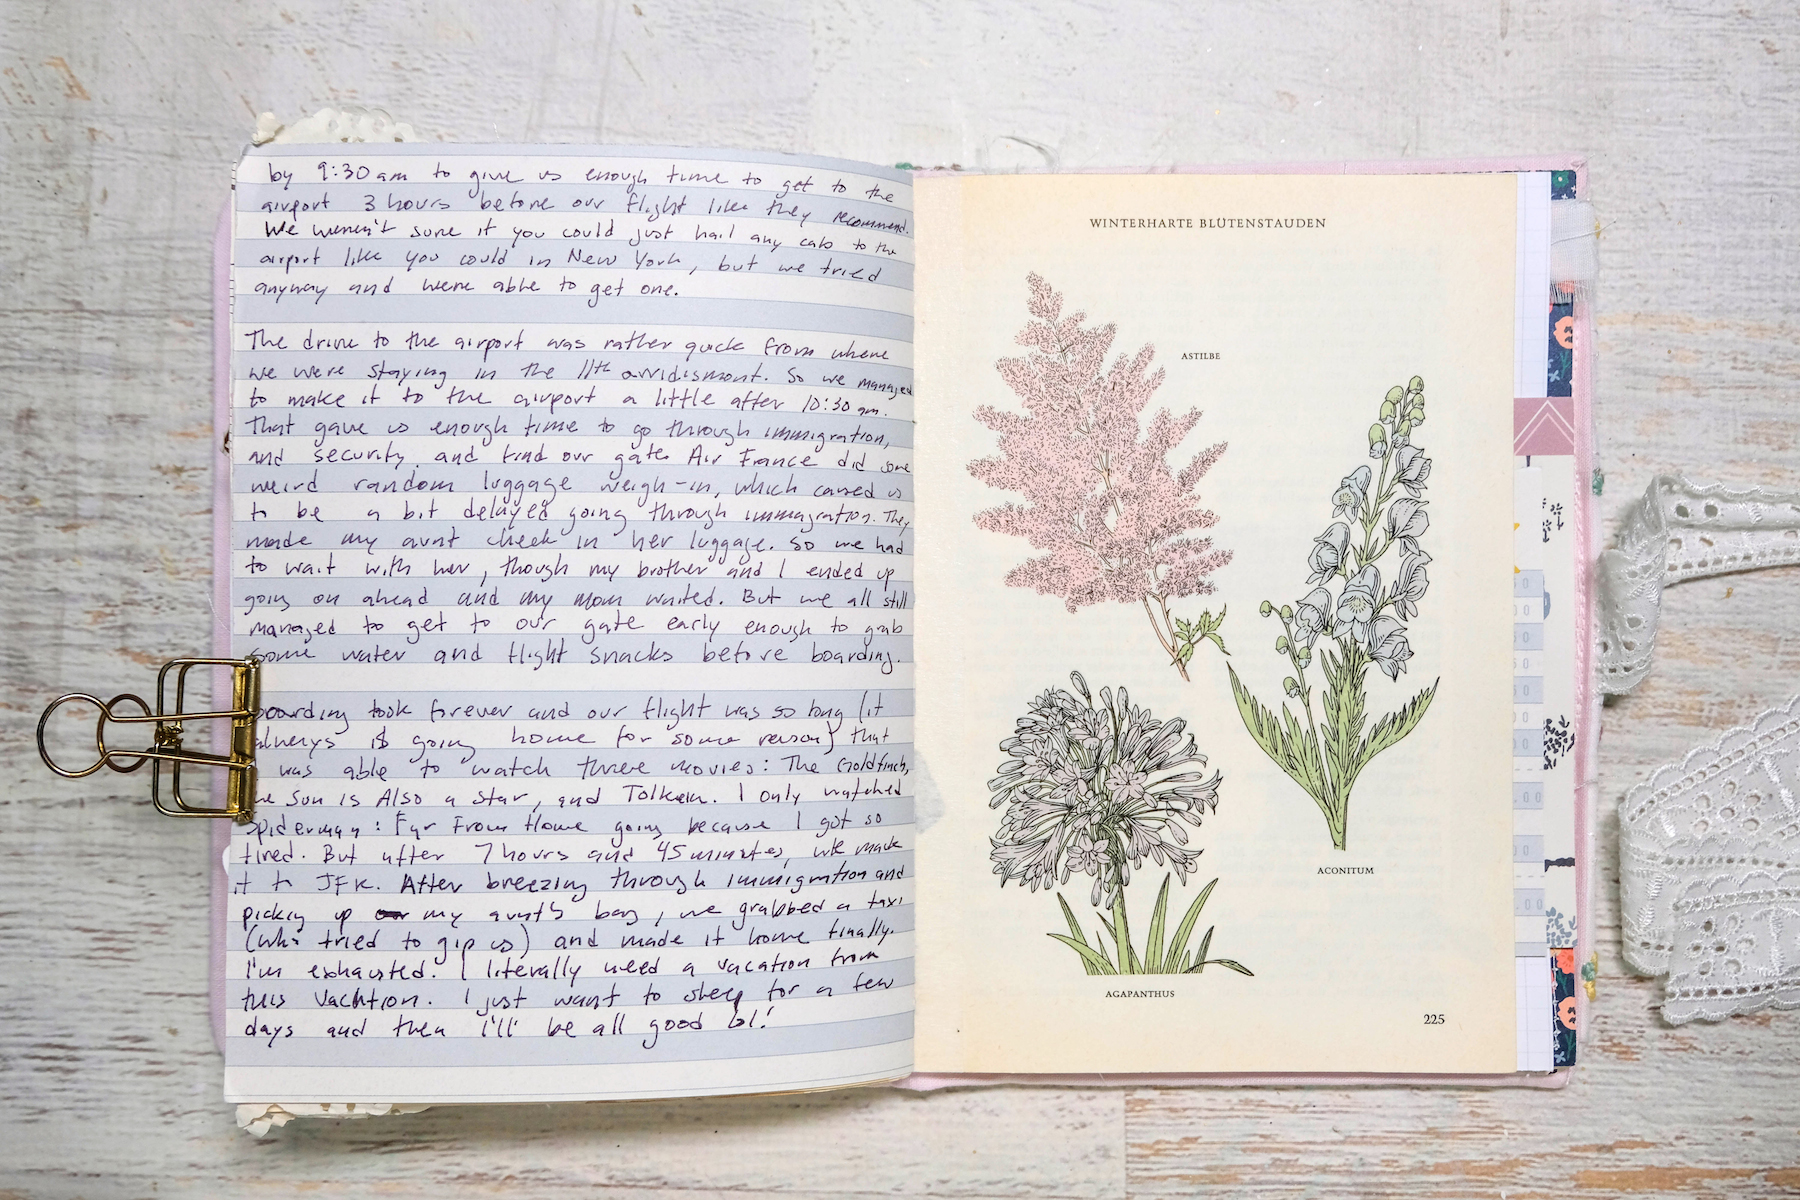 by 9:30 am to give us enough time to get to the
airport 3 hours before our flight like they recommend.
We weren't sure if you could just hail any cab to the
airport like you could in New York, but we tried
anyway and were able to get one.
The drive to the airport was rather quick from where
we were staying in the 11th arridismont. So we managed
to make it to the airport a little after 10:30 am.
That gave us enough time to go through immigration,
and security and find our gate. Air France did some
weird random luggage weigh-in, which caused us
to be a bit delayed going through immagration. They
made my aunt check in her luggage. So we had
to wait with her, though my brother and I ended up
going on ahead and my mom waited. But we all still
managed to get to our gate early enough to grab
some water and flight snacks before boarding.
boarding took forever and our flight was so long (it
always is going home for some reason) that
was able to watch three movies: The Goldfinch,
The Sun is Also a Star, and Tolkein. I only watched
Spiderman: Far From Home going because I got so
tired. But after 7 hours and 45 minutes, we made
it to JFK. After breezing through immigration and
picking up my aunt's bag, we grabbed a taxi
(who tried to gip us) and made it home finally.
I'm exhausted. I literally need a vacation from
this vacation. I just want to sleep for a few
days and then I'll be all good lol!
WINTERHARTE BLÜTENSTAUDEN
ASTILBE
ACONITUM
AGAPANTHUS
225